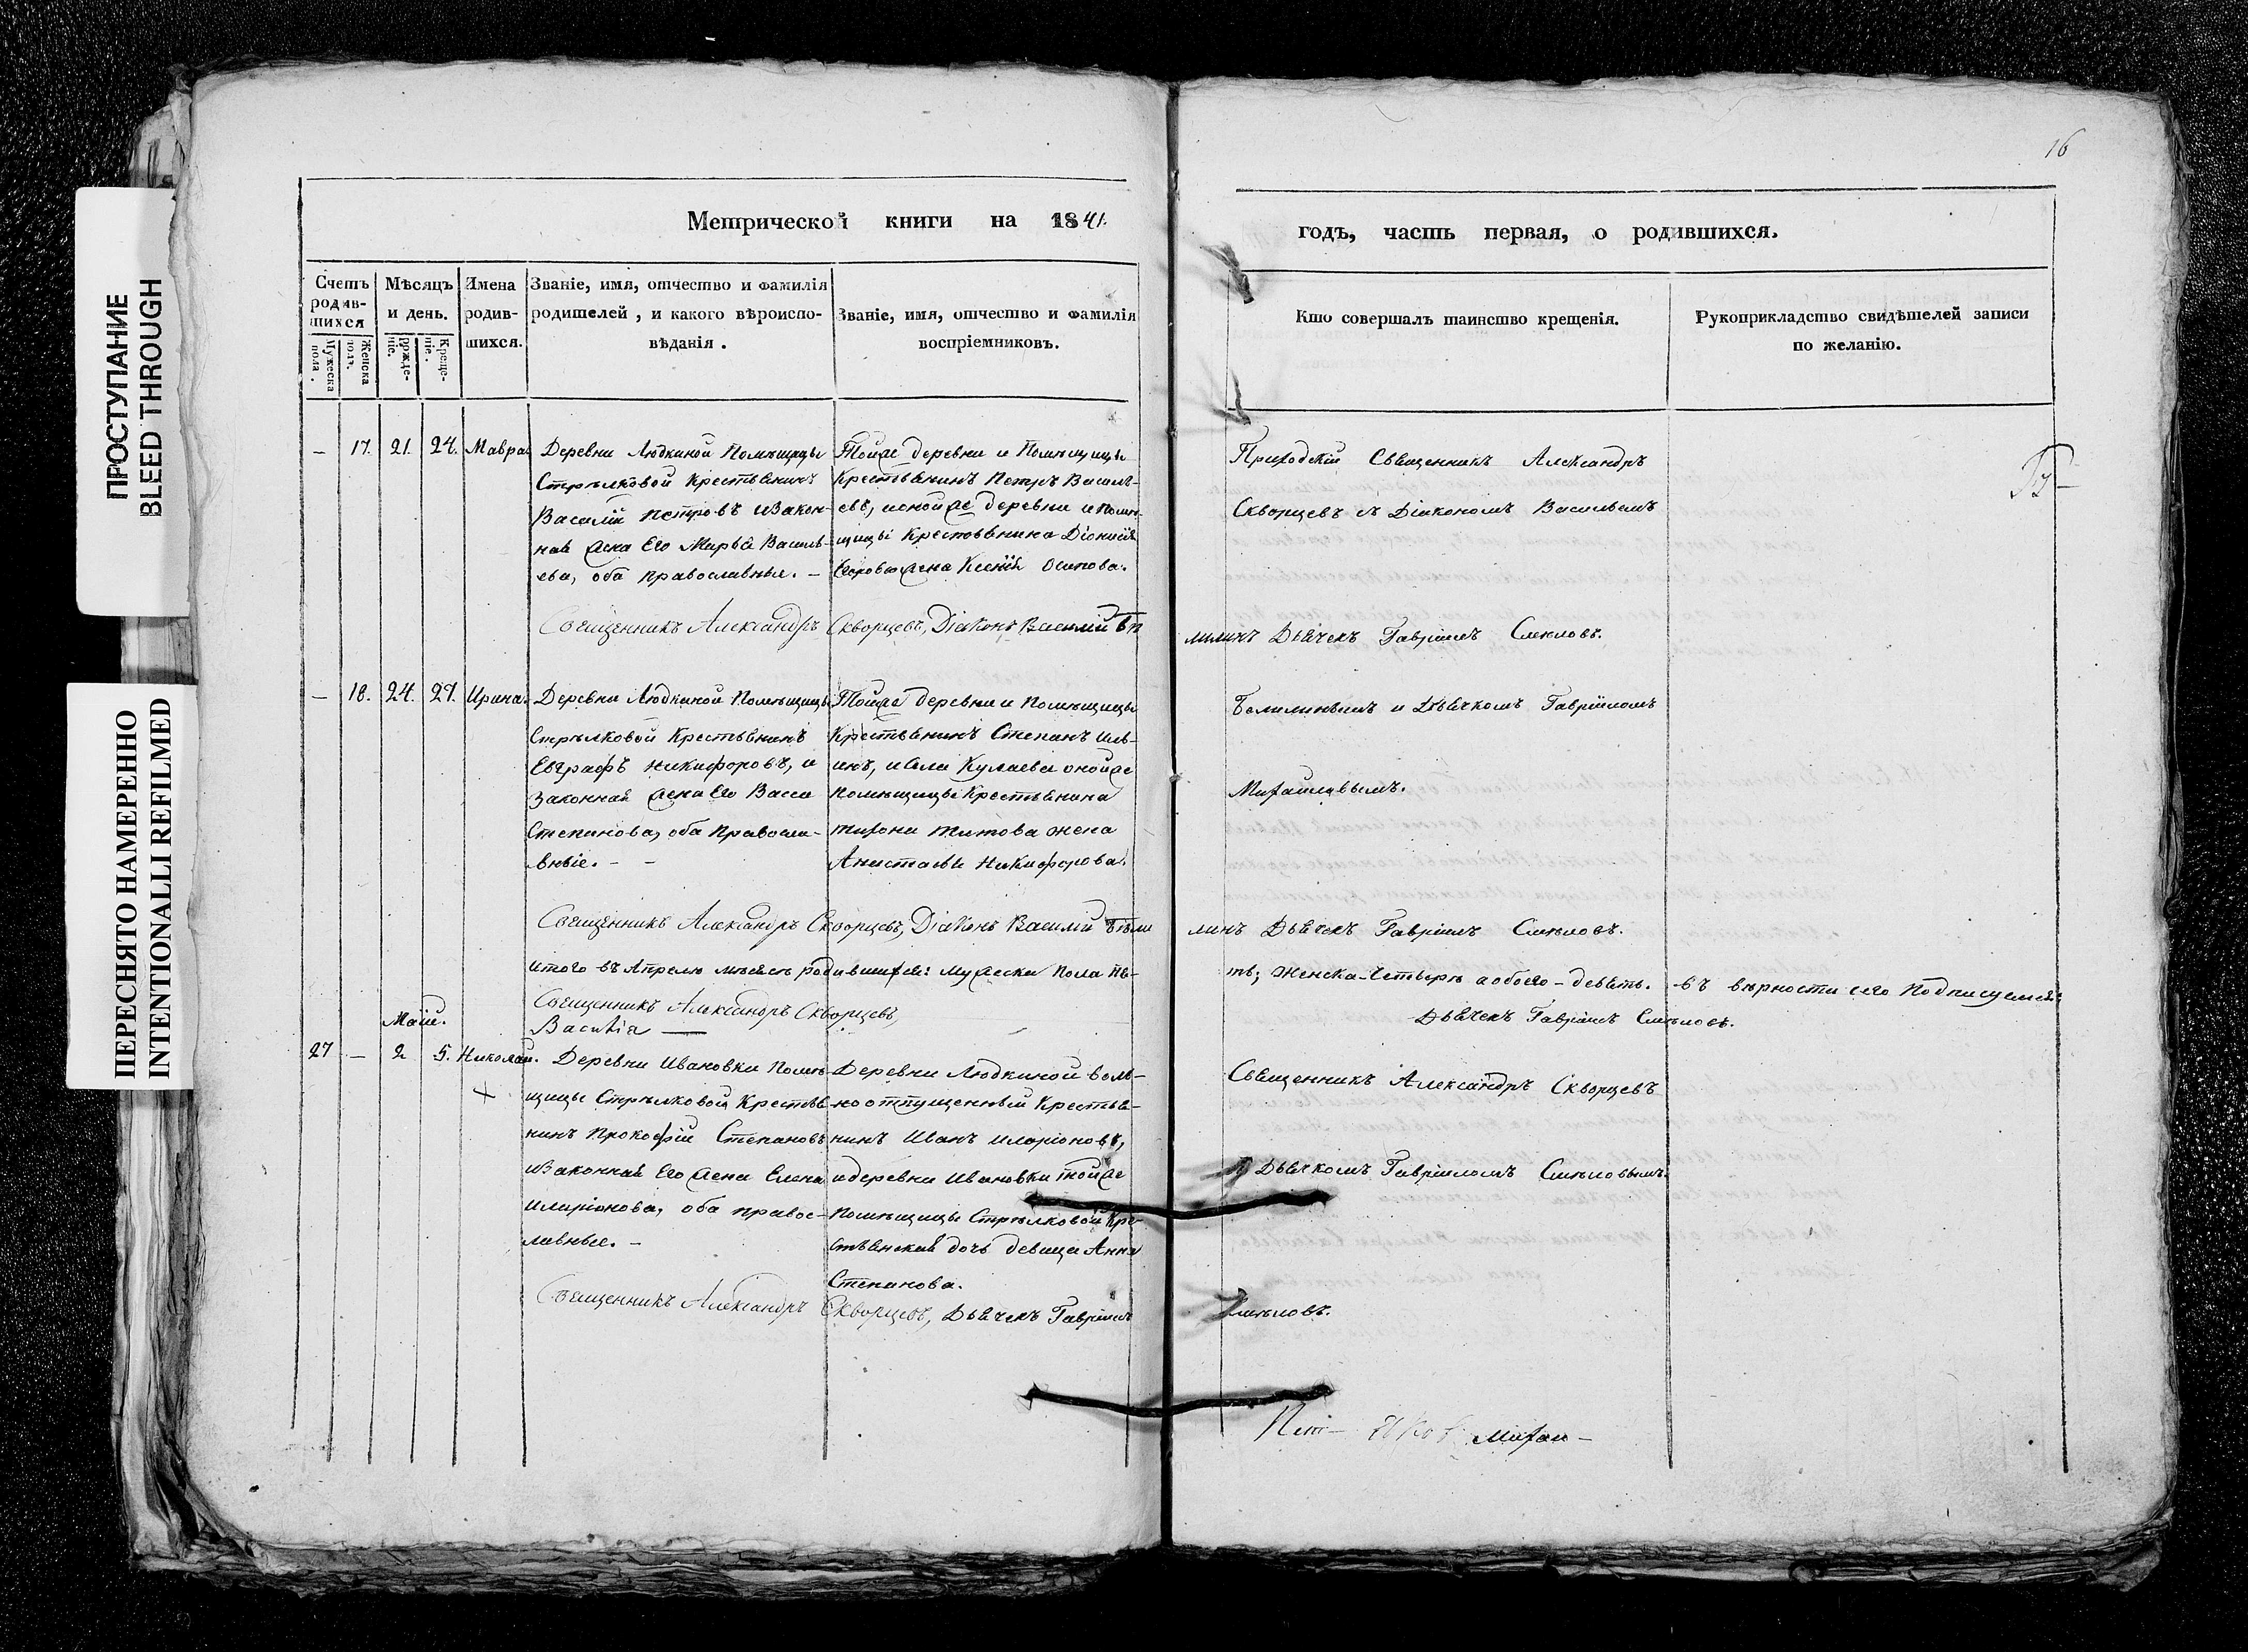 ПРОСТУПАНИЕ
BLEED THROUGH
ПЕРЕСНЯТО НАМЕРЕННО
INTENTIONALLI REFILMED
16
Метрической книги на 1841.
годъ, часть первая, о родившихся.
Счетъ родив-шихся
Мужеска пола.
Женска пола.
Мѣсяцъ и день.
рожде-ніе.
Креще-ніе.
Имена родив-шихся.
Званіе, имя, отчество и фамилія
родителей, и какого вѣроиспо-
вѣданія.
Званіе, имя, отчество и фамилія
воспріемниковъ.
Кто совершалъ таинство крещенія.
Рукоприкладство свидѣтелей записи
по желанію.
— 17. 21. 24. Мавра
Деревни Людкиной Помѣщицы
Стрѣлковой Крестьянинъ
Василій Петровъ изакон-
ная жена Его Марья Василь-
ева, оба православные. —
Тойже деревни и Помѣщицы
Крестьянинъ Петръ Василь-
евъ, ионойже деревни и помѣ-
щицы Крестьянина Діонисія
жена Ксенія Осипова.
Приходскій Священникъ Александръ
Скворцевъ съ Діакономъ Васильемъ
Священникъ Александръ Скворцевъ, Діаконъ Василій
Дьячекъ Гавріилъ Смѣловъ.
— 18. 24. 27. Ирина.
Деревни Людкиной Помѣщицы
Стрѣлковой Крестьянинъ
Евграфъ Никифоровъ, и
Законная жена Его Васса
Степанова, оба Правосла-
вные. — —
Тойже деревни и Помѣщицы
Крестьянинъ Степанъ Иль-
инъ, и Села Кулаева онойже
помѣщицы Крестьянина
Тихона Титова жена
Анастасья Никифорова.
и Дьячкомъ Гавріиломъ
Михайловымъ.
Священникъ Александръ Скворцевъ, Діаконъ Василій
Дьячекъ Гавріилъ Смѣловъ.
Итого въ Апрелѣ мѣсяцѣ родившихся: Мужеска пола пя-
ть; Женска-Четыре а обоего-девять. въ вѣрности сего Подписуемся:
Священникъ Александръ Скворцевъ,
Дьячекъ Гавріилъ Смѣловъ.
Маія.
27 — 2 5. Николай.
+
Деревни Ивановки Помѣ-
щицы Стрѣлковой Крестья-
нинъ Прокофій Степановъ
изаконная Его жена Елена
Иларіонова, оба правос-
лавные. —
Деревни Людкиной воль-
ноотпущенный Крестья-
нинъ Иванъ Иларіоновъ,
идеревни Ивановки тойже
Помѣщицы Стрѣлковой Кре-
стьянская дочь девица Анна
Степанова.
Священникъ Александръ Скворцевъ
съ Дьячкомъ Гавріиломъ Смѣловымъ.
Священникъ Александръ Скворцевъ, Дьячекъ Гавріилъ
Смѣловъ.